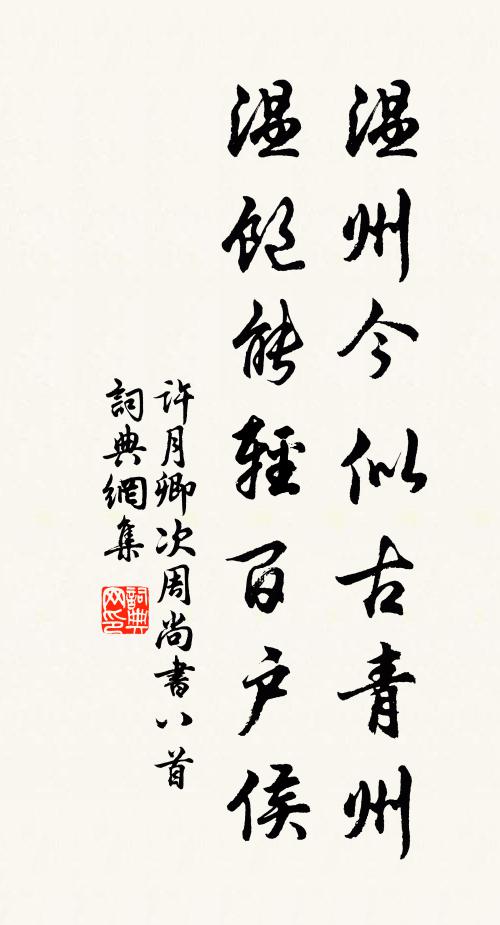 温州今似古青州
温飽能輕百户侯
許月卿次周尚書八首
詞典網集
詞典
网印